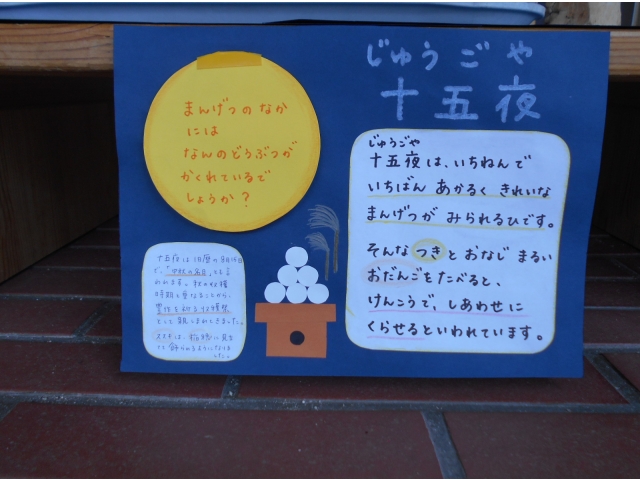 じゅうごや
十五夜
まんげつのなか
には
なんのどうぶつが
かくれているで
しょうか？
じゅうごや
十五夜は、いちねんで
いちばん あかるく きれいな
まんげつが みられるひです。
そんな つき と おなじ まるい
おだんごをたべると、
けんこうで、しあわせに
くらせるといわれています。
十五夜は旧暦の
で、「中秋の名月」とも言
われます。秋の収穫
時期と重なることから、
豊作を祝う収穫祭
として親しまれてきました。
ススキは、稲穂に見立
てて飾られるようになりま
した。